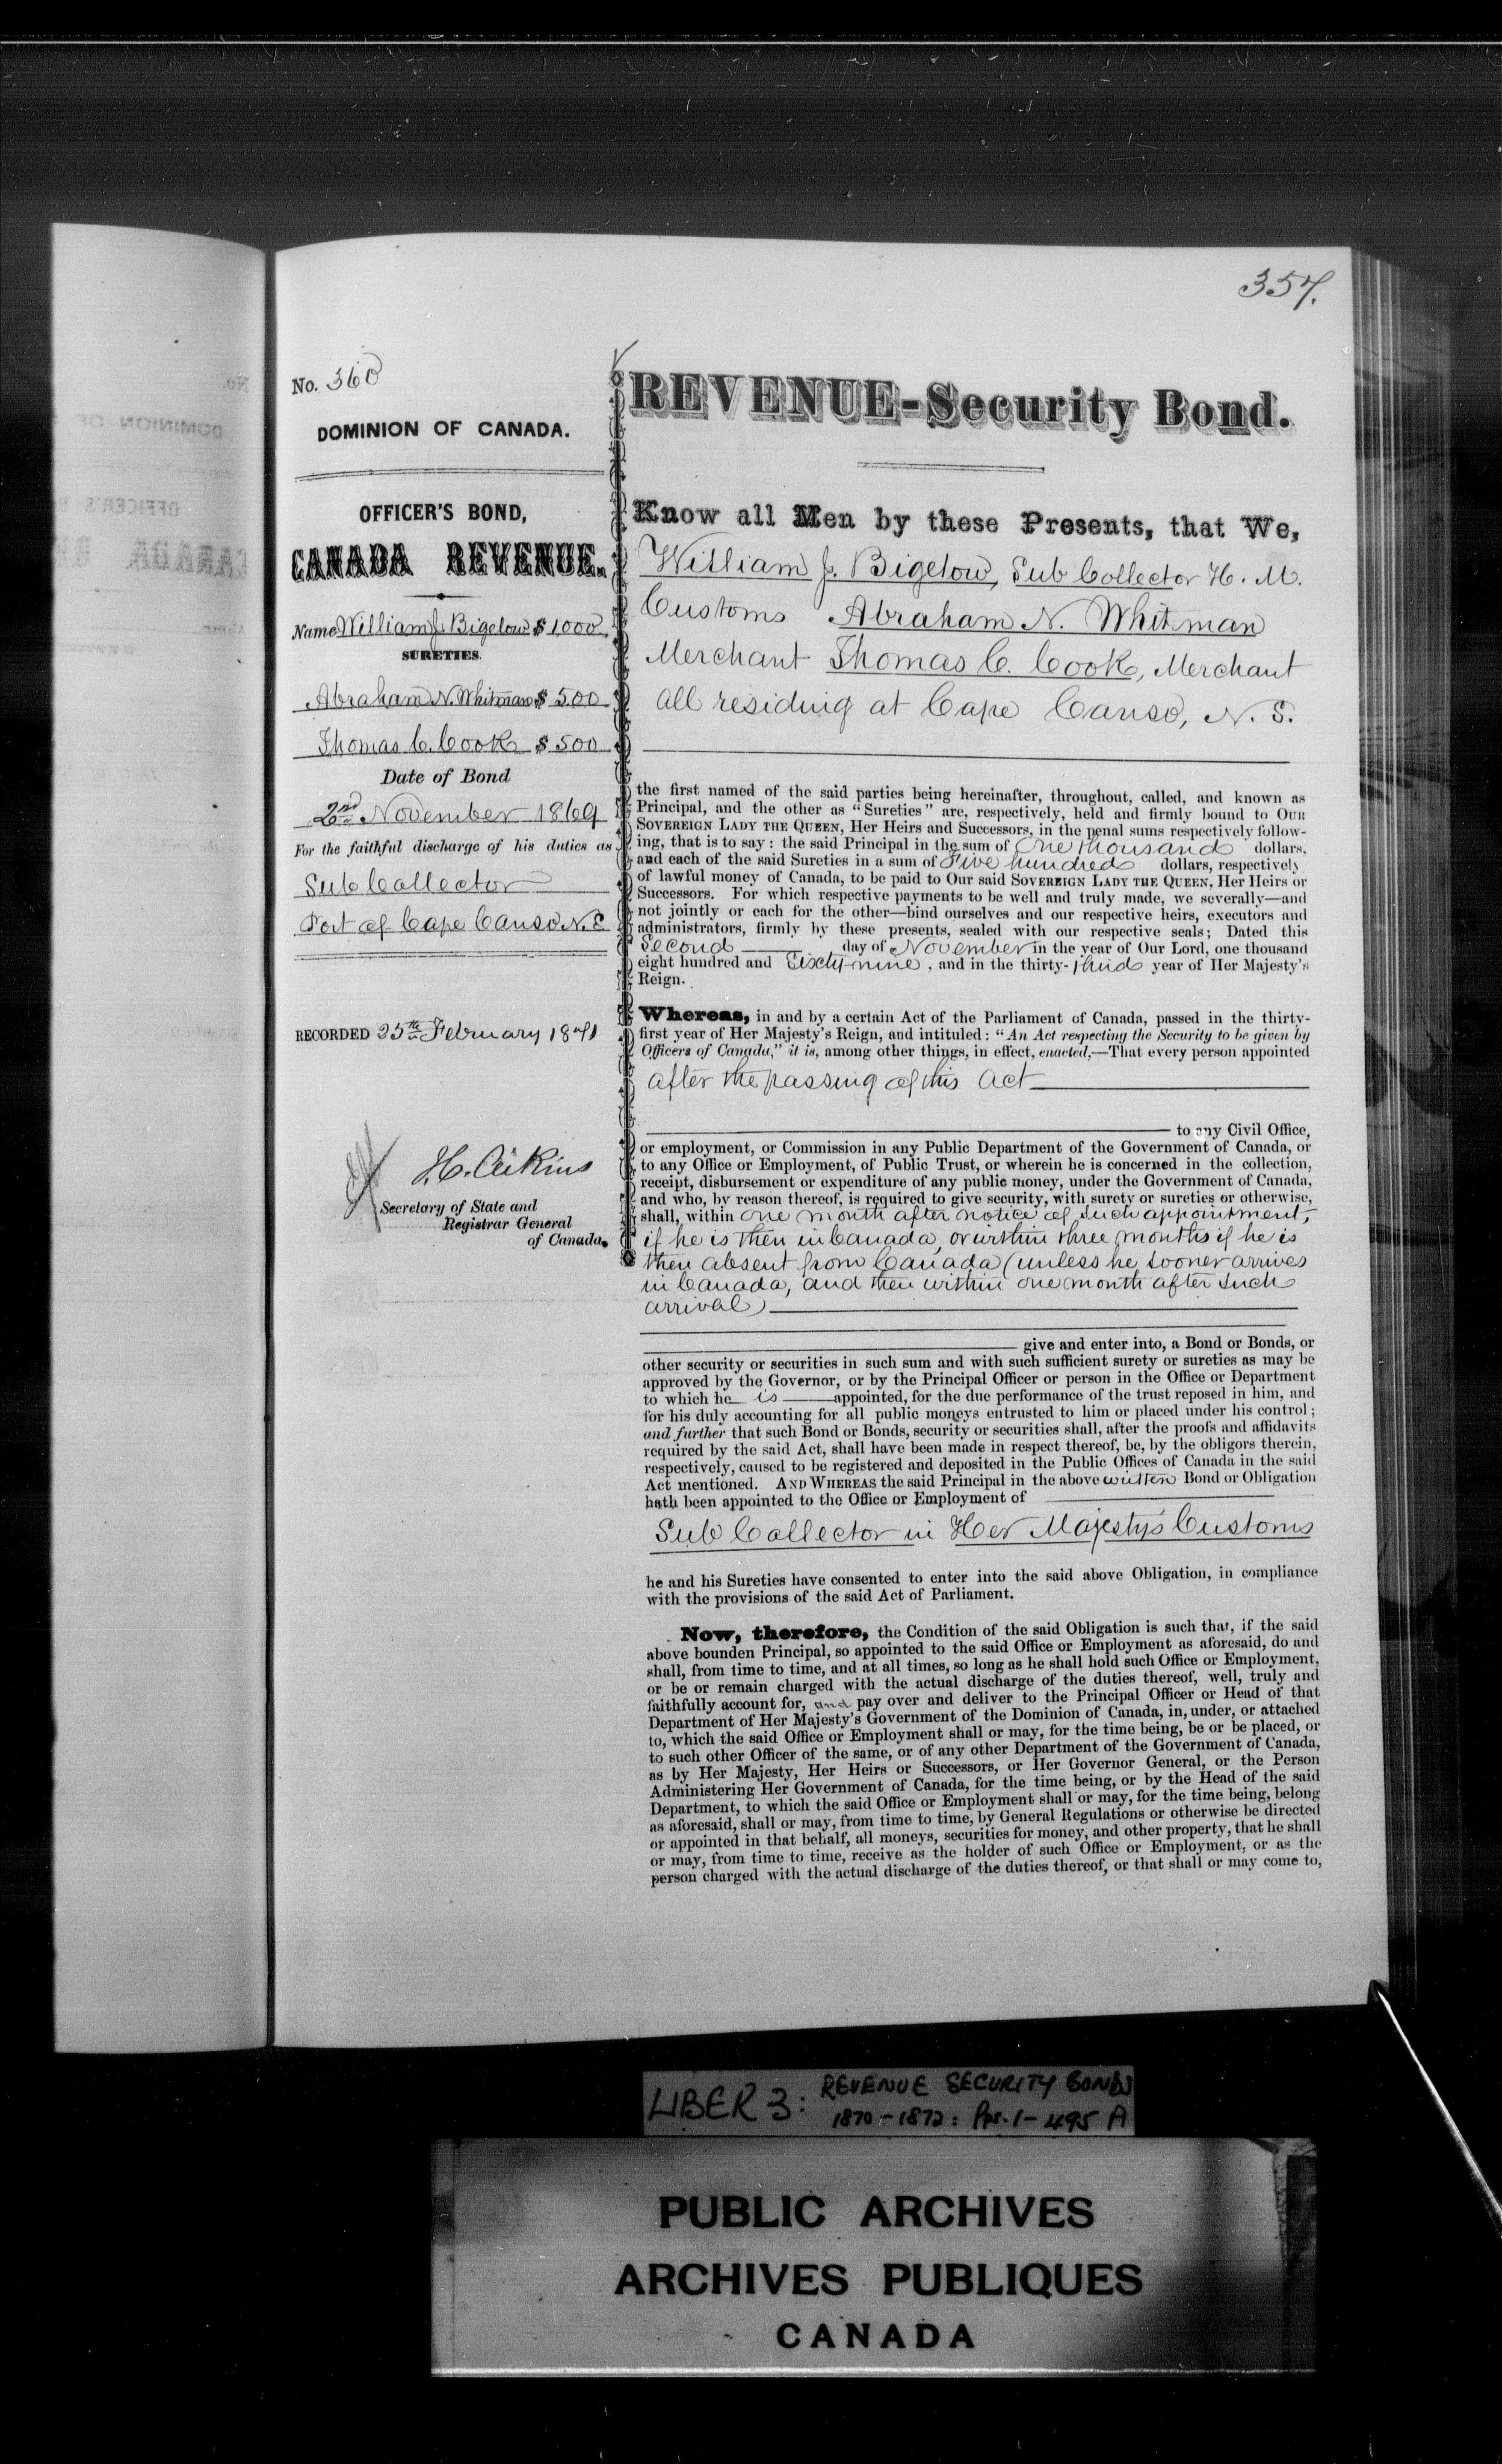 357.
No. 360
DOMINION OF CANADA.
OFFICER'S BOND,
CANADA REVENUE.
Name William J. Bigelow $ 1,000
SURETIES.
Abraham N. Whitman $ 500
Thomas C. Cook $ 500
Date of Bond
2nd November 1869
For the faithful discharge of his duties as
Sub Collector
Port of Cape Canso N.S
RECORDED 25th February 1871
J.C. Aikins
Secretary of State and
Registrar General
of Canada.
REVENUE-Security Bond.
Know all Men by these Presents, that We,
William J. Bigelow, Sub Collector H. M.
Customs Abraham N. Whitman
Merchant Thomas C. Cook, Merchant
all residing at Cape Canso, N. S.
the first named of the said parties being hereinafter, throughout, called, and known as
Principal, and the other as "Sureties" are, respectively, held and firmly bound to OUR
SOVEREIGN LADY THE QUEEN, Her Heirs and Successors, in the penal sums respectively follow-
ing, that is to say: the said Principal in the sum of One thousand dollars,
and each of the said Sureties in a sum of Five hundred dollars, respectively
of lawful money of Canada, to be paid to Our said SOVEREIGN LADY THE QUEEN, Her Heirs or
Successors. For which respective payments to be well and truly made, we severally—and
not jointly or each for the other—bind ourselves and our respective heirs, executors and
administrators, firmly by these presents, sealed with our respective seals; Dated this
Second day of November in the year of Our Lord, one thousand
eight hundred and Sixty-nine, and in the thirty-third year of Her Majesty's
Reign.
Whereas, in and by a certain Act of the Parliament of Canada, passed in the thirty-
first year of Her Majesty's Reign, and intituled: "An Act respecting the Security to be given by
Officers of Canada," it is, among other things, in effect, enacted,—That every person appointed
after the passing of this Act
to any Civil Office,
or employment, or Commission in any Public Department of the Government of Canada, or
to any Office or Employment, of Public Trust, or wherein he is concerned in the collection,
receipt, disbursement or expenditure of any public money, under the Government of Canada,
and who, by reason thereof, is required to give security, with surety or sureties or otherwise,
shall, within one month after notice of such appointment,
if he is then in Canada, or within three months if he is
then absent from Canada (unless he sooner arrives
in Canada, and then within one month after such
arrival)
give and enter into, a Bond or Bonds, or
other security or securities in such sum and with such sufficient surety or sureties as may be
approved by the Governor, or by the Principal Officer or person in the Office or Department
to which he is appointed, for the due performance of the trust reposed in him, and
for his duly accounting for all public moneys entrusted to him or placed under his control;
and further that such Bond or Bonds, security or securities shall, after the proofs and affidavits
required by the said Act, shall have been made in respect thereof, be, by the obligors therein,
respectively, caused to be registered and deposited in the Public Offices of Canada in the said
Act mentioned. AND WHEREAS the said Principal in the above written Bond or Obligation
hath been appointed to the Office or Employment of
Sub Collector in Her Majesty's Customs
he and his Sureties have consented to enter into the said above Obligation, in compliance
with the provisions of the said Act of Parliament.
Now, therefore, the Condition of the said Obligation is such that, if the said
above bounden Principal, so appointed to the said Office or Employment as aforesaid, do and
shall, from time to time, and at all times, so long as he shall hold such Office or Employment,
or be or remain charged with the actual discharge of the duties thereof, well, truly and
faithfully account for, and pay over and deliver to the Principal Officer or Head of that
Department of Her Majesty's Government of the Dominion of Canada, in, under, or attached
to, which the said Office or Employment shall or may, for the time being, be or be placed, or
to such other Officer of the same, or of any other Department of the Government of Canada,
as by Her Majesty, Her Heirs or Successors, or Her Governor General, or the Person
Administering Her Government of Canada, for the time being, or by the Head of the said
Department, to which the said Office or Employment shall or may, for the time being, belong
as aforesaid, shall or may, from time to time, by General Regulations or otherwise be directed
or appointed in that behalf, all moneys, securities for money, and other property, that he shall
or may, from time to time, receive as the holder of such Office or Employment, or as the
person charged with the actual discharge of the duties thereof, or that shall or may come to,
LIBER 3: REVENUE SECURITY BONDS
1870-1872: Pps. 1-495 A
PUBLIC ARCHIVES
ARCHIVES PUBLIQUES
CANADA